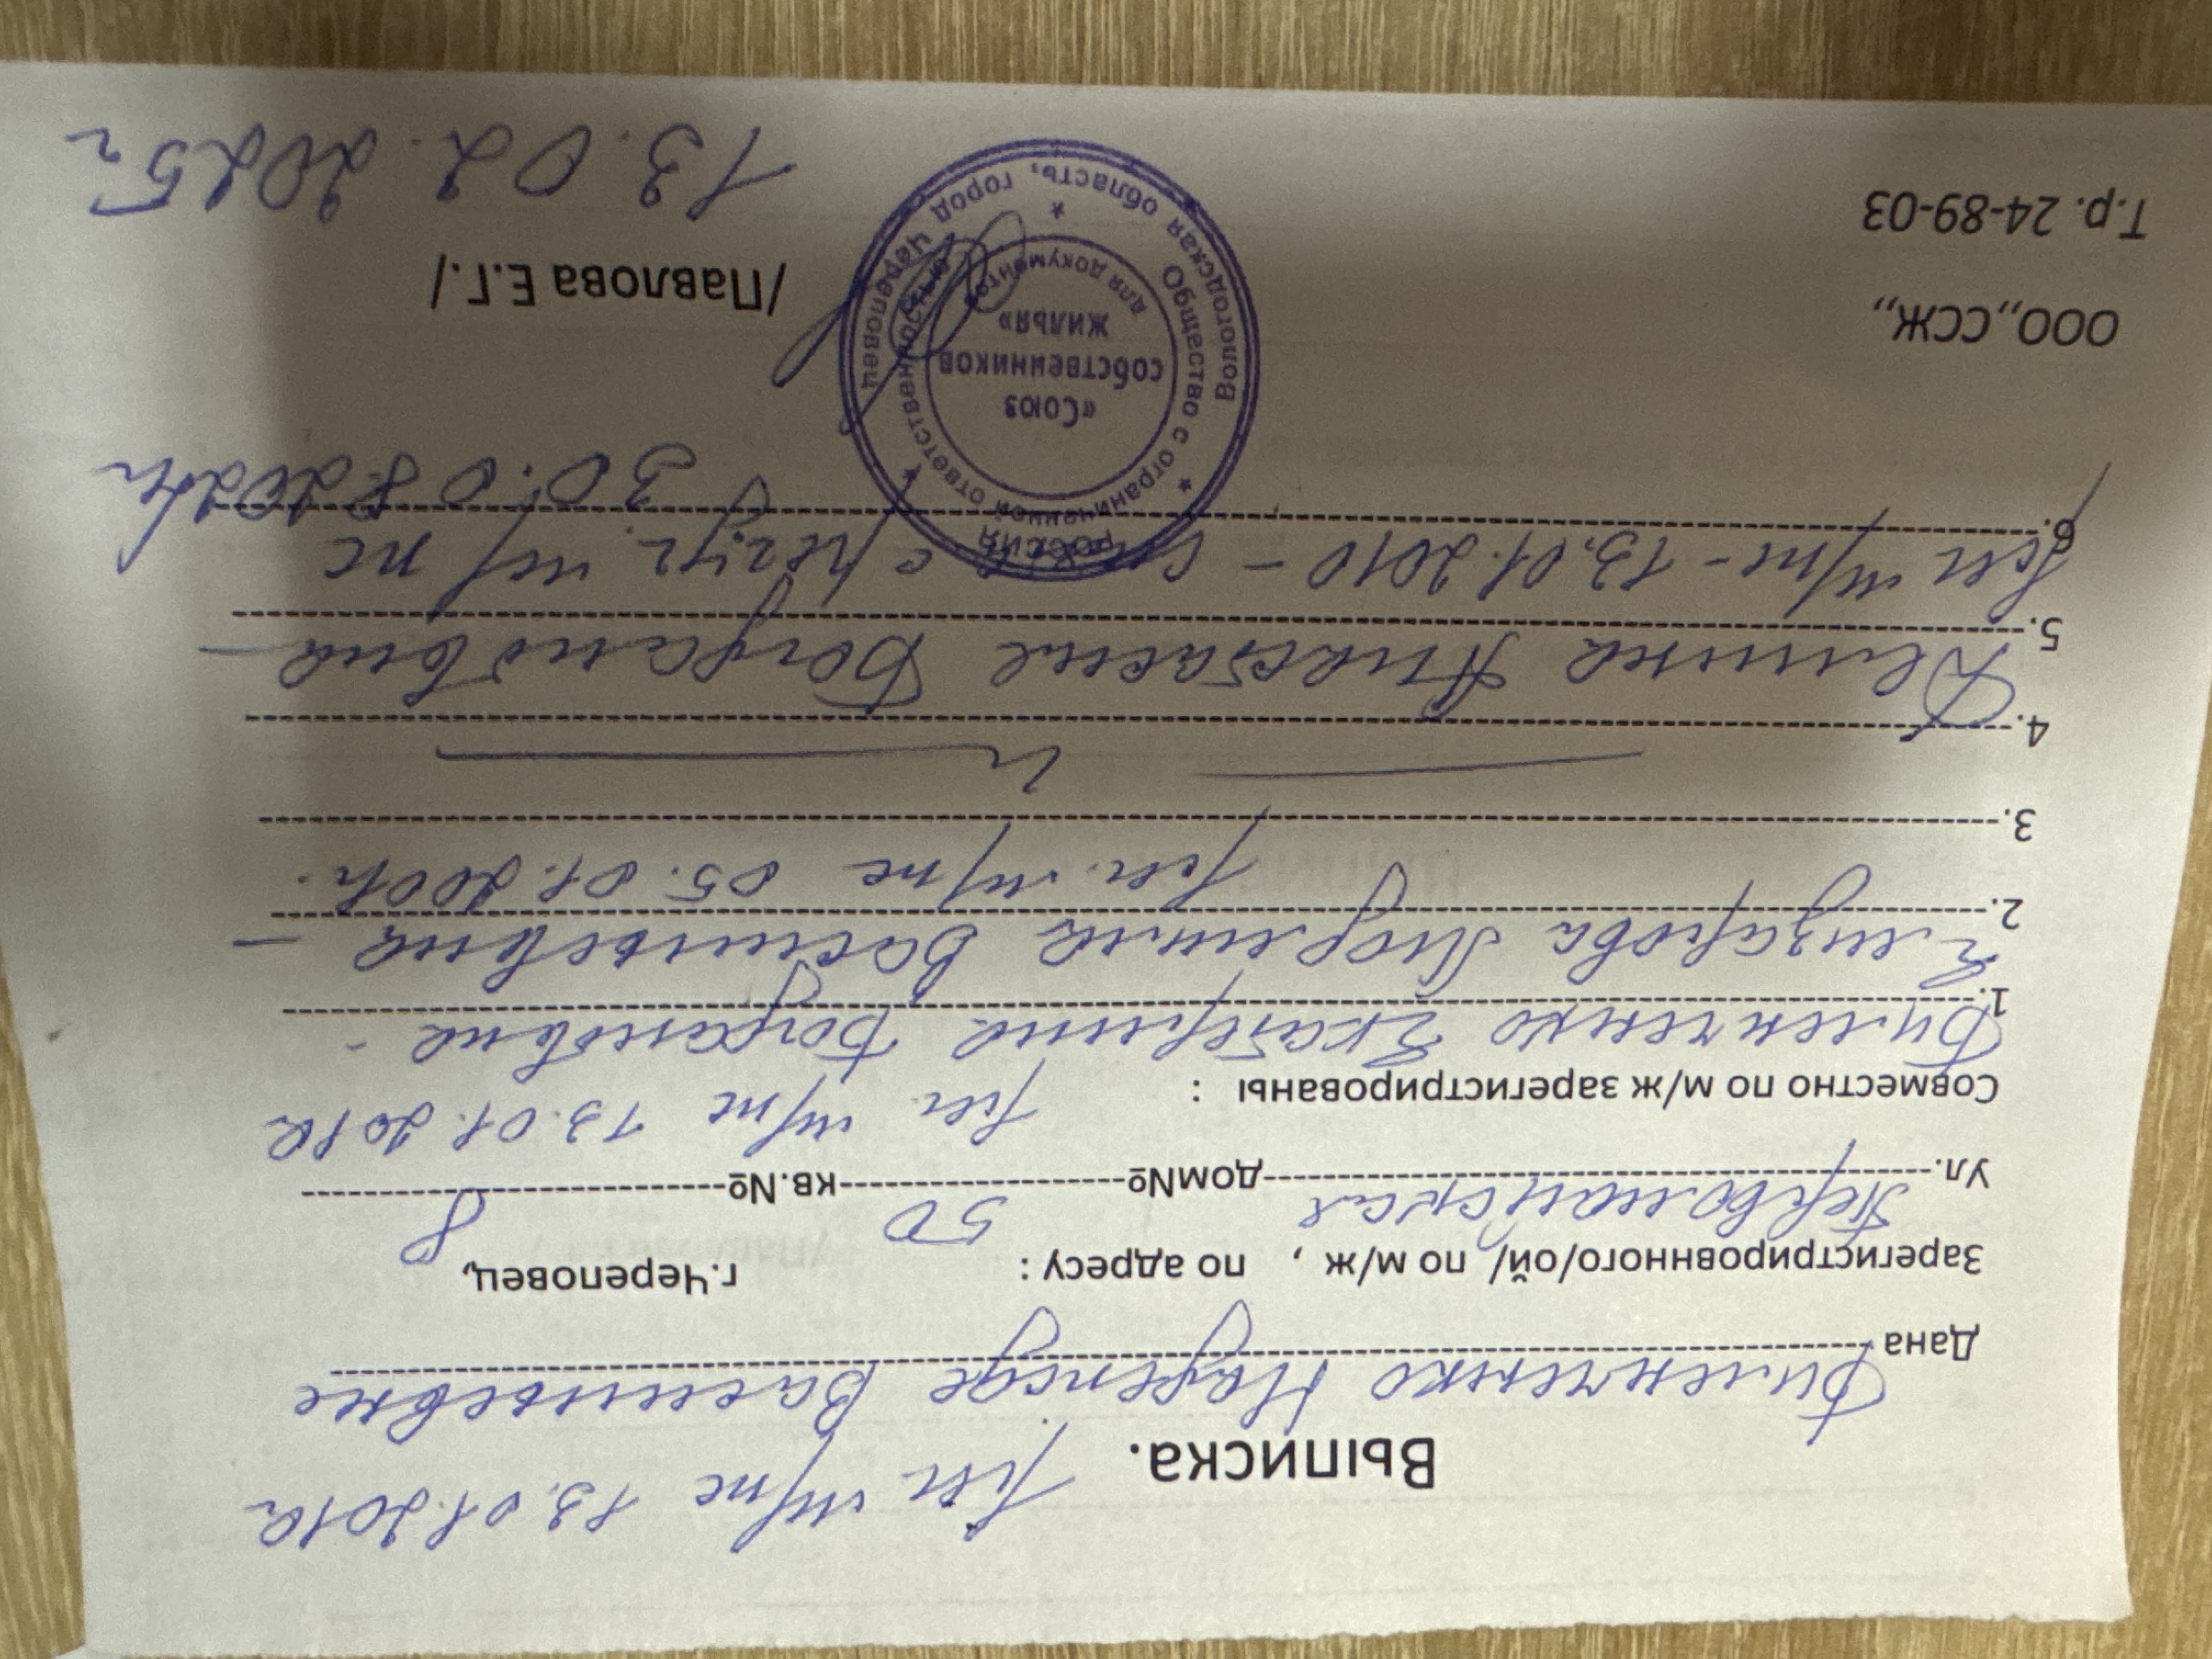 Выписка. рег. м/ж 13.01.2010г
Дана Биленченко Надежде Васильевне
Зарегистрировнного/ой/ по м/ж , по адресу : г.Череповец,
Ул. Первомайская дом№ 50 кв.№ 8
рег. м/ж 13.01.2010г
Совместно по м/ж зарегистрированы :
1. Биленченко Екатерина Богдановна -
2. Елизарова Людмила Васильевна -
рег. м/ж 05.01.2001г.
3.
4.
5. Демина Анастасия Богдановна -
6. рег м/ж - 13.01.2010 - с рег.уч. м/ж
30.08.2024г
ООО,,ССЖ,, /Павлова Е.Г./
Т.р. 24-89-03 13.02.2025г
Россия
Вологодская область, город Череповец
Общество с ограниченной ответственностью
«Союз
собственников
жилья»
Для документов